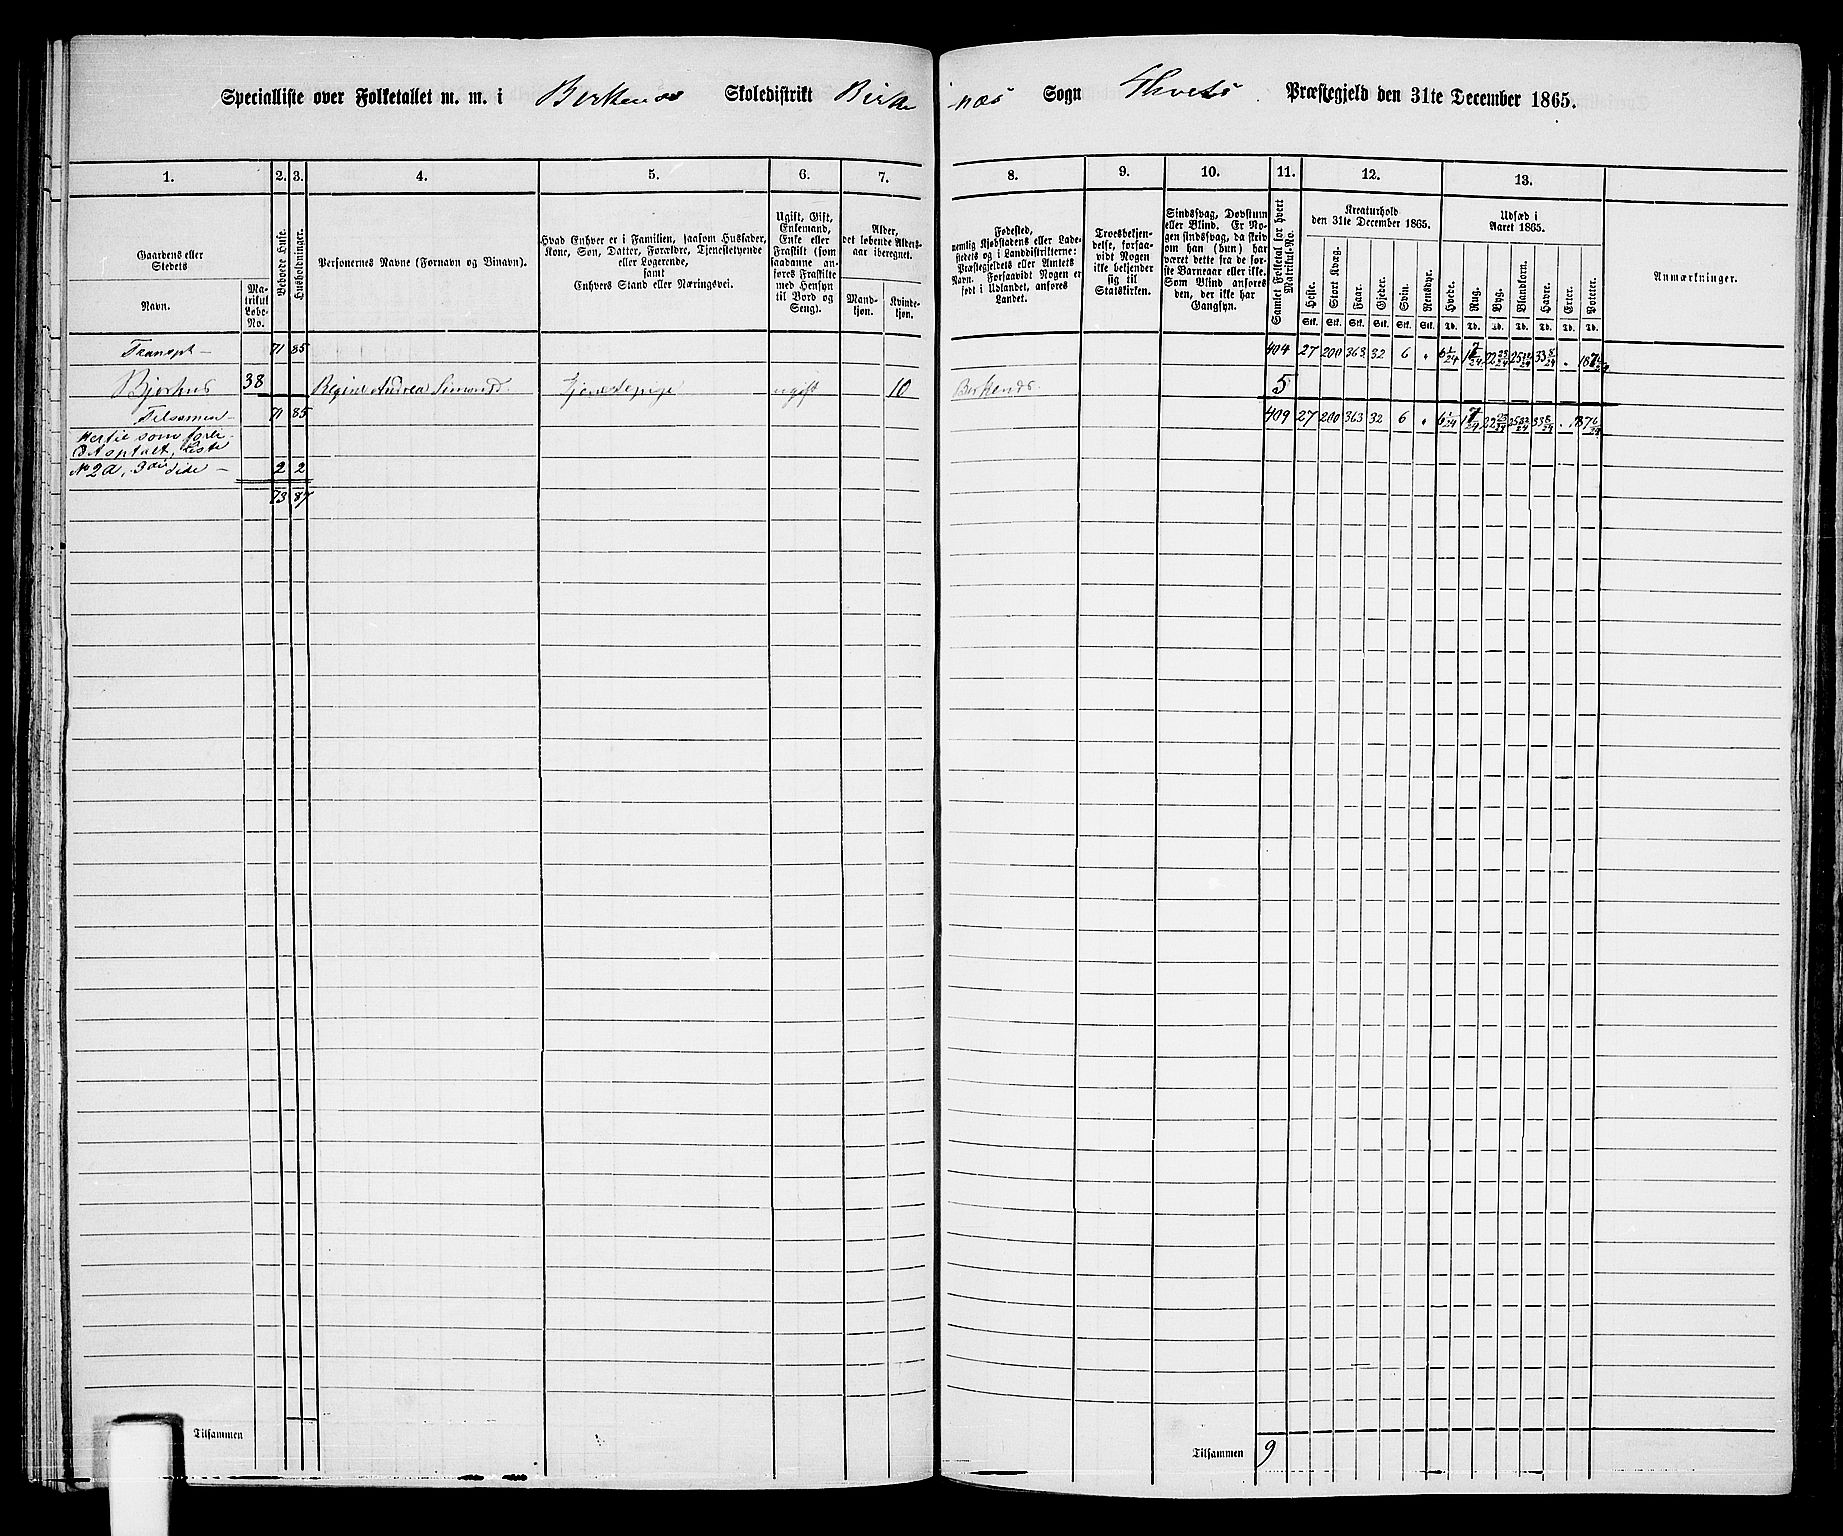 Specialliste over Folketallet m. m. i Birkenæs Skoledistrikt Birke
næs Sogn Præstegjeld den 31te December 1865.
1. 2. 3. 4. 5. 6. 7.
8. 9. 10. 11. 12. 13.
Gaardens eller
Stedets
Navn.
Ma-
trikul
Løbe-
No.
Beboede Huse.
Husholdninger.
Personernes Navne (Fornavn og Binavn).
Hvad Enhver er i Familien, saasom Husfader,
Kone, Søn, Datter, Forældre, Tjenestetyende
eller Logerende,
samt
Enhvers Stand eller Næringsvei.
Ugift, Gift,
Enkemand,
Enke eller
Fraskilt (som
saadanne an-
føres Fraskilte
med Hensyn
til Bord og
Seng).
Alder,
det løbende Alders-
aar iberegnet.
Mand-
kjøn.
Kvinde-
kjøn.
Fødested,
nemlig Kjøbstadens eller Lade-
stedets og i Landdistrikterne:
Præstegjeldets eller Amtets
Navn. Forsaavidt Nogen er
født i Udlandet, anføres
Landet.
Troesbekjen-
delse, forsaa-
vidt Nogen
ikke bekjender
sig til
Statskirken.
Sindssvag, Døvstum
eller Blind. Er No-
gen sindssvag, da skriv
om han (hun) har
været dette fra de før-
ste Barneaar eller ikke.
Som Blind anføres
den, der ikke har
Gangsyn.
Samlet Folketal for hvert
Matrikul-No.
Kreaturhold
den 31te December 1865.
Heste. Stort Kvæg. Faar. Gjeder. Svin. Rensdyr.
Stk. Stk. Stk. Stk. Stk. Stk.
Udsæd i
Aaret 1865.
Hvede. Rug. Byg. Blandkorn. Havre. Erter. Poteter.
Td. Td. Td. Td. Td. Td. Td.
Anmærkninger.
Transpt - 71 85 404 27 200 363 32 6
Bjerknes 38 Regine Andrea Simonsd. Tjenestepige ugift 10 Birkenæs. 5
Tilsammen 71 85 409 27 200 363 32 6
Hertil som forbi-
Liste
No 2a, Side - 2 2
73 87
Tilsammen
Tilsammen 9